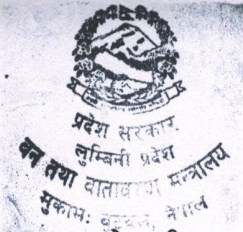 प्रदेश सरकार
लुम्बिनी प्रदेश
वन तथा वातावरण मन्त्रालय
मुकामः बुटवल, नेपाल